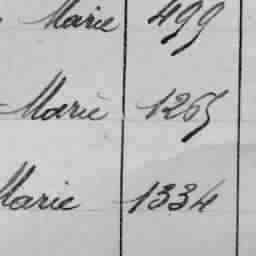 Marie 499
Marie 1265
Marie 1334